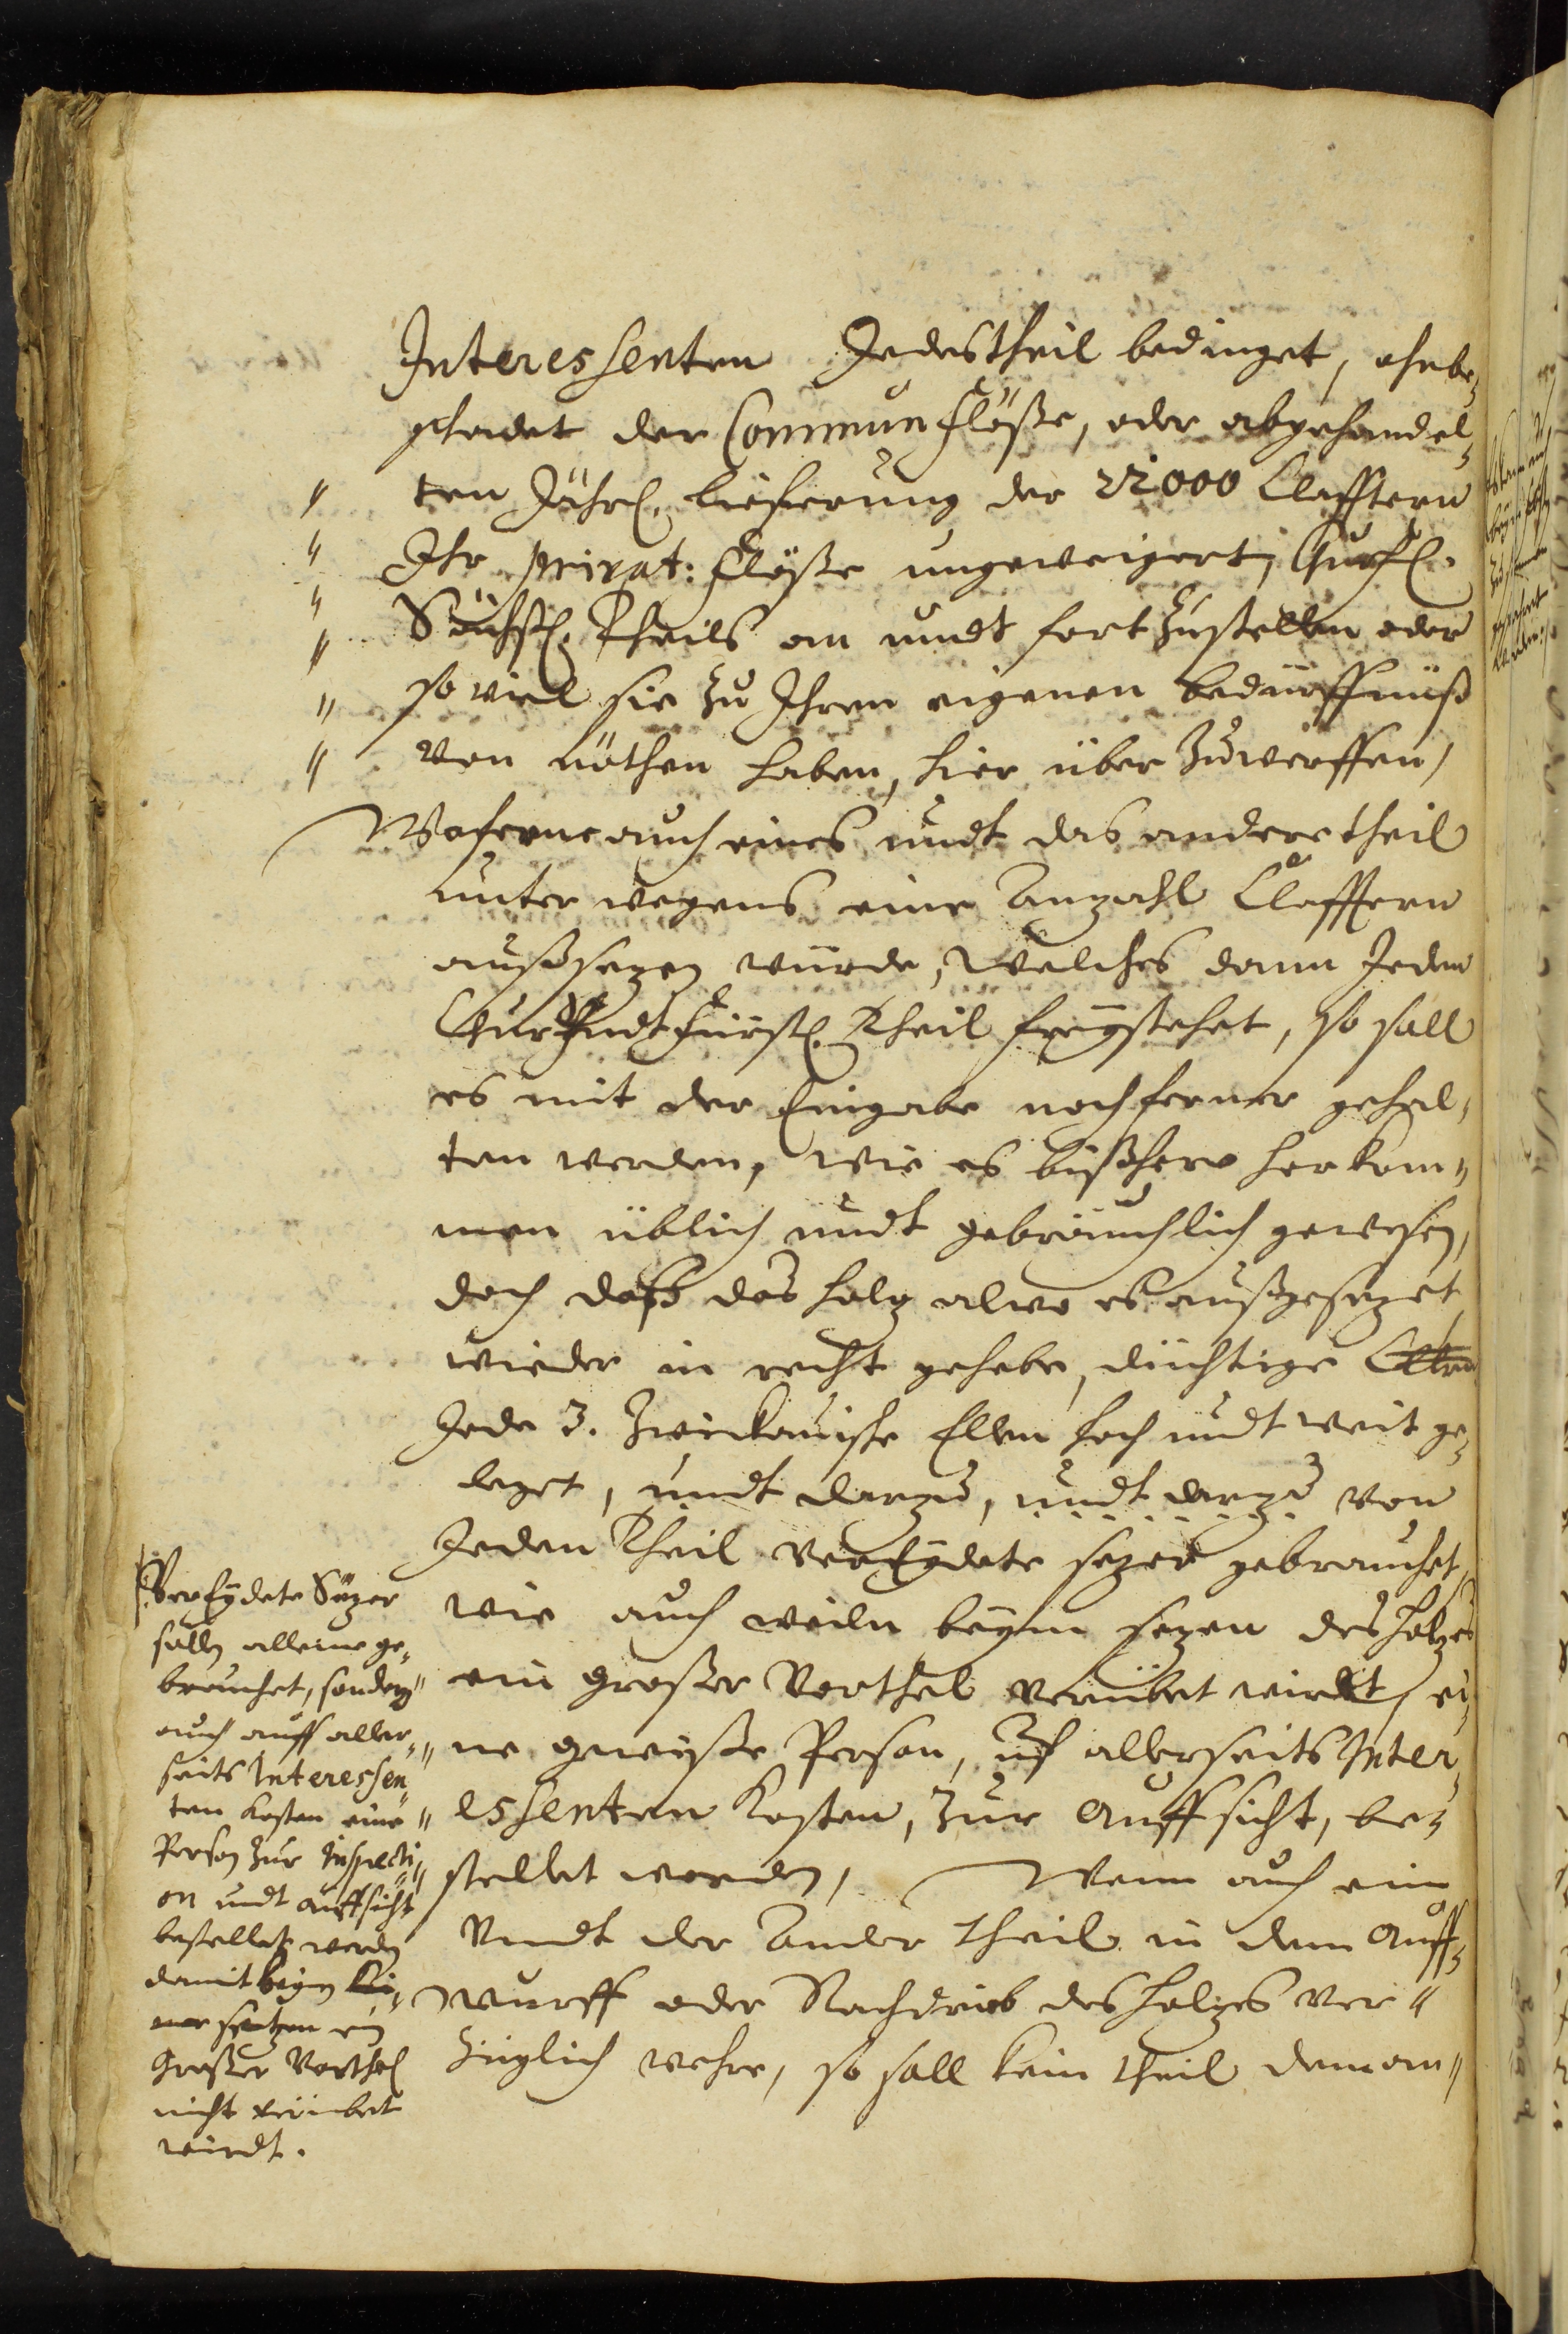 Interessenten Jedestheil bedinget, ohnbe-
schadet der Commun flöße, oder abgehandel-
ten Jährl. lieferung der 22000 Clafftern
Ihr privat: flöße ungeweigert, Churfl.
Sächßl. Theils an undt fort zustellen oder
so viel sie zu Ihren eigenen bedürffnüß
von nöthen haben, hier über zuwerffen,
Wofern auch eines undt das andere theil
unter wegens eine Anzahl Clafftern
außsezen würde, Welches dann Jedem
Chur Undt Fürstl. Theil freystehet, so soll
es mit der Eingabe noch ferner gehal-
ten werden, wie es bißhero herkom-
men üblich undt gebräuchlich gewesen,
doch daß das holz alwo es außgesezet
wieder in recht gehebe, düchtige Clltrn
Jede 3. Zwickauische Ellen hoch undt weit ge-
leget, undt darzu, undt darzu von
Jeden Theil VerEydete sezer gebrauchet,
wie auch weiln beym sezen des holzes
ein großer Vorthel verübet wirdt, ei-
ne gewiße Person, uf allerseits Inter-
essenten Kosten, zur Auffsicht, be-
stellet werden, Wenn auch ein
Undt der Ander theil in dem Auff-
wurff oder Nachdrieb des holzes ver-
züglich wehre, so soll kein theil dem an-
VerEydete Sezer
sollen alleine ge-
brauchet, sondern
auch auff aller-
seits Interessen
ten Kosten eine
Person zur Inspecti-
on undt auffsicht
bestellet werden
damit beym
setzen ein
großer Vorthel
nicht verübet
wirdt.